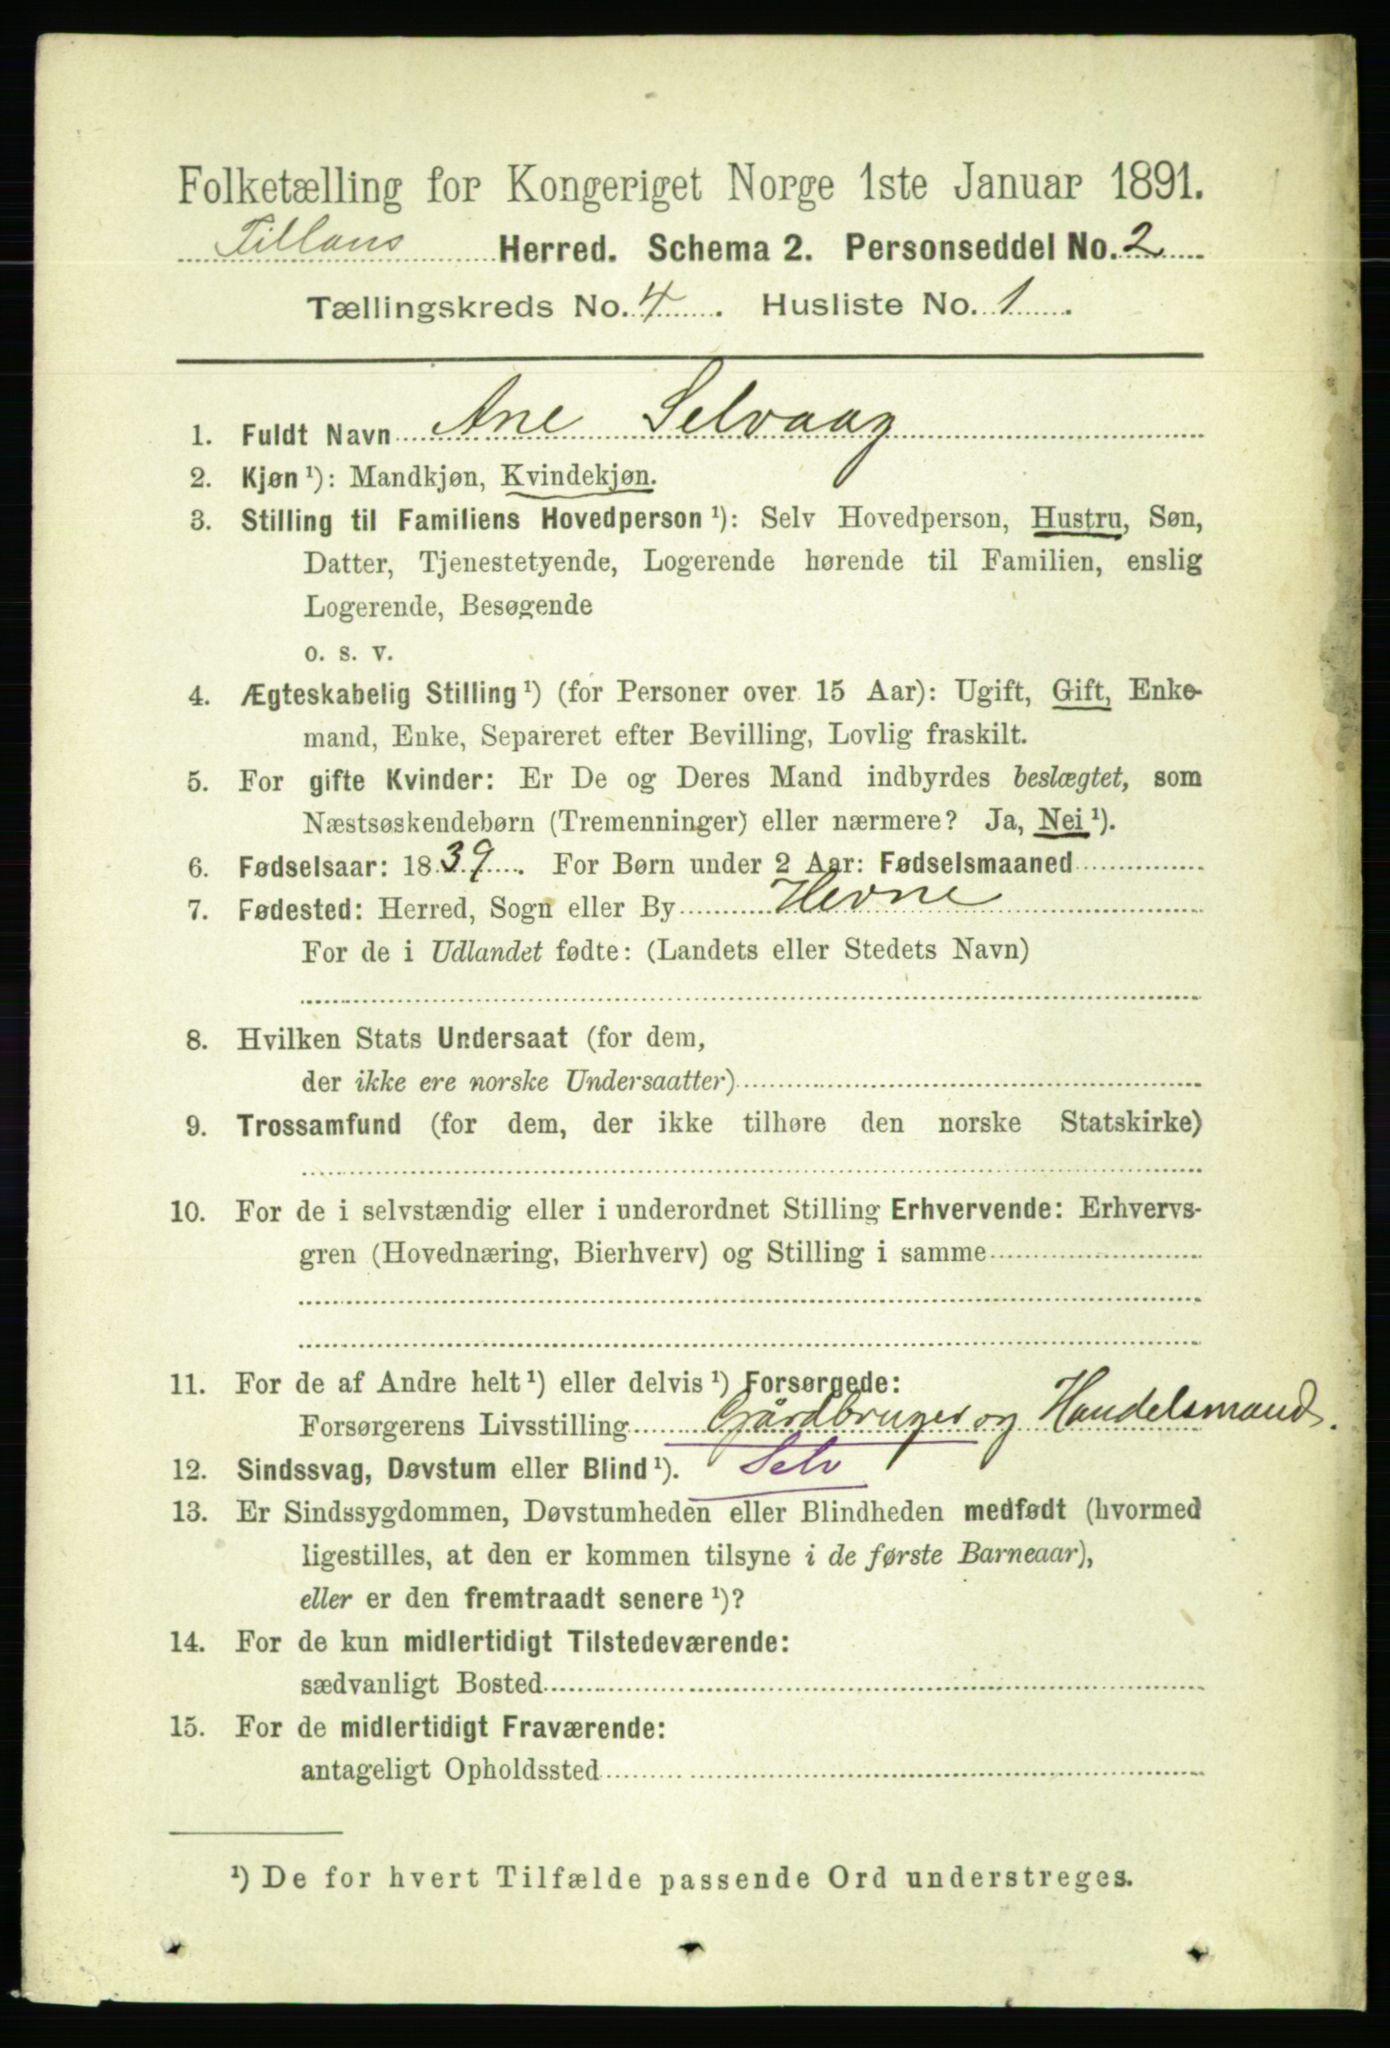 Folketælling for Kongeriget Norge 1ste Januar 1891.
Fillans Herred. Schema 2. Personseddel No. 2
Tællingskreds No. 4. Husliste No. 1.
1. Fuldt Navn Ane Selvaag
2. Kjøn ¹): Mandkjøn, Kvindekjøn.
3. Stilling til Familiens Hovedperson ¹): Selv Hovedperson, Hustru, Søn,
Datter, Tjenestetyende, Logerende hørende til Familien, enslig
Logerende, Besøgende
o. s. v.
4. Ægteskabelig Stilling ¹) (for Personer over 15 Aar): Ugift, Gift, Enke-
mand, Enke, Separeret efter Bevilling, Lovlig fraskilt.
5. For gifte Kvinder: Er De og Deres Mand indbyrdes beslægtet, som
Næstsøskendebørn (Tremenninger) eller nærmere? Ja, Nei ¹).
6. Fødselsaar: 1839. For Børn under 2 Aar: Fødselsmaaned
7. Fødested: Herred, Sogn eller By Hevne
For de i Udlandet fødte: (Landets eller Stedets Navn)
8. Hvilken Stats Undersaat (for dem,
der ikke ere norske Undersaatter)
9. Trossamfund (for dem, der ikke tilhøre den norske Statskirke)
10. For de i selvstændig eller i underordnet Stilling Erhvervende: Erhvervs-
gren (Hovednæring, Bierhverv) og Stilling i samme
11. For de af Andre helt ¹) eller delvis ¹) Forsørgede:
Forsørgerens Livsstilling Gårdbruger og Handelsmand.
12. Sindssvag, Døvstum eller Blind ¹). Selv
13. Er Sindssygdommen, Døvstumheden eller Blindheden medfødt (hvormed
ligestilles, at den er kommen tilsyne i de første Barneaar),
eller er den fremtraadt senere ¹)?
14. For de kun midlertidigt Tilstedeværende:
sædvanligt Bosted
15. For de midlertidigt Fraværende:
antageligt Opholdssted
¹) De for hvert Tilfælde passende Ord understreges.